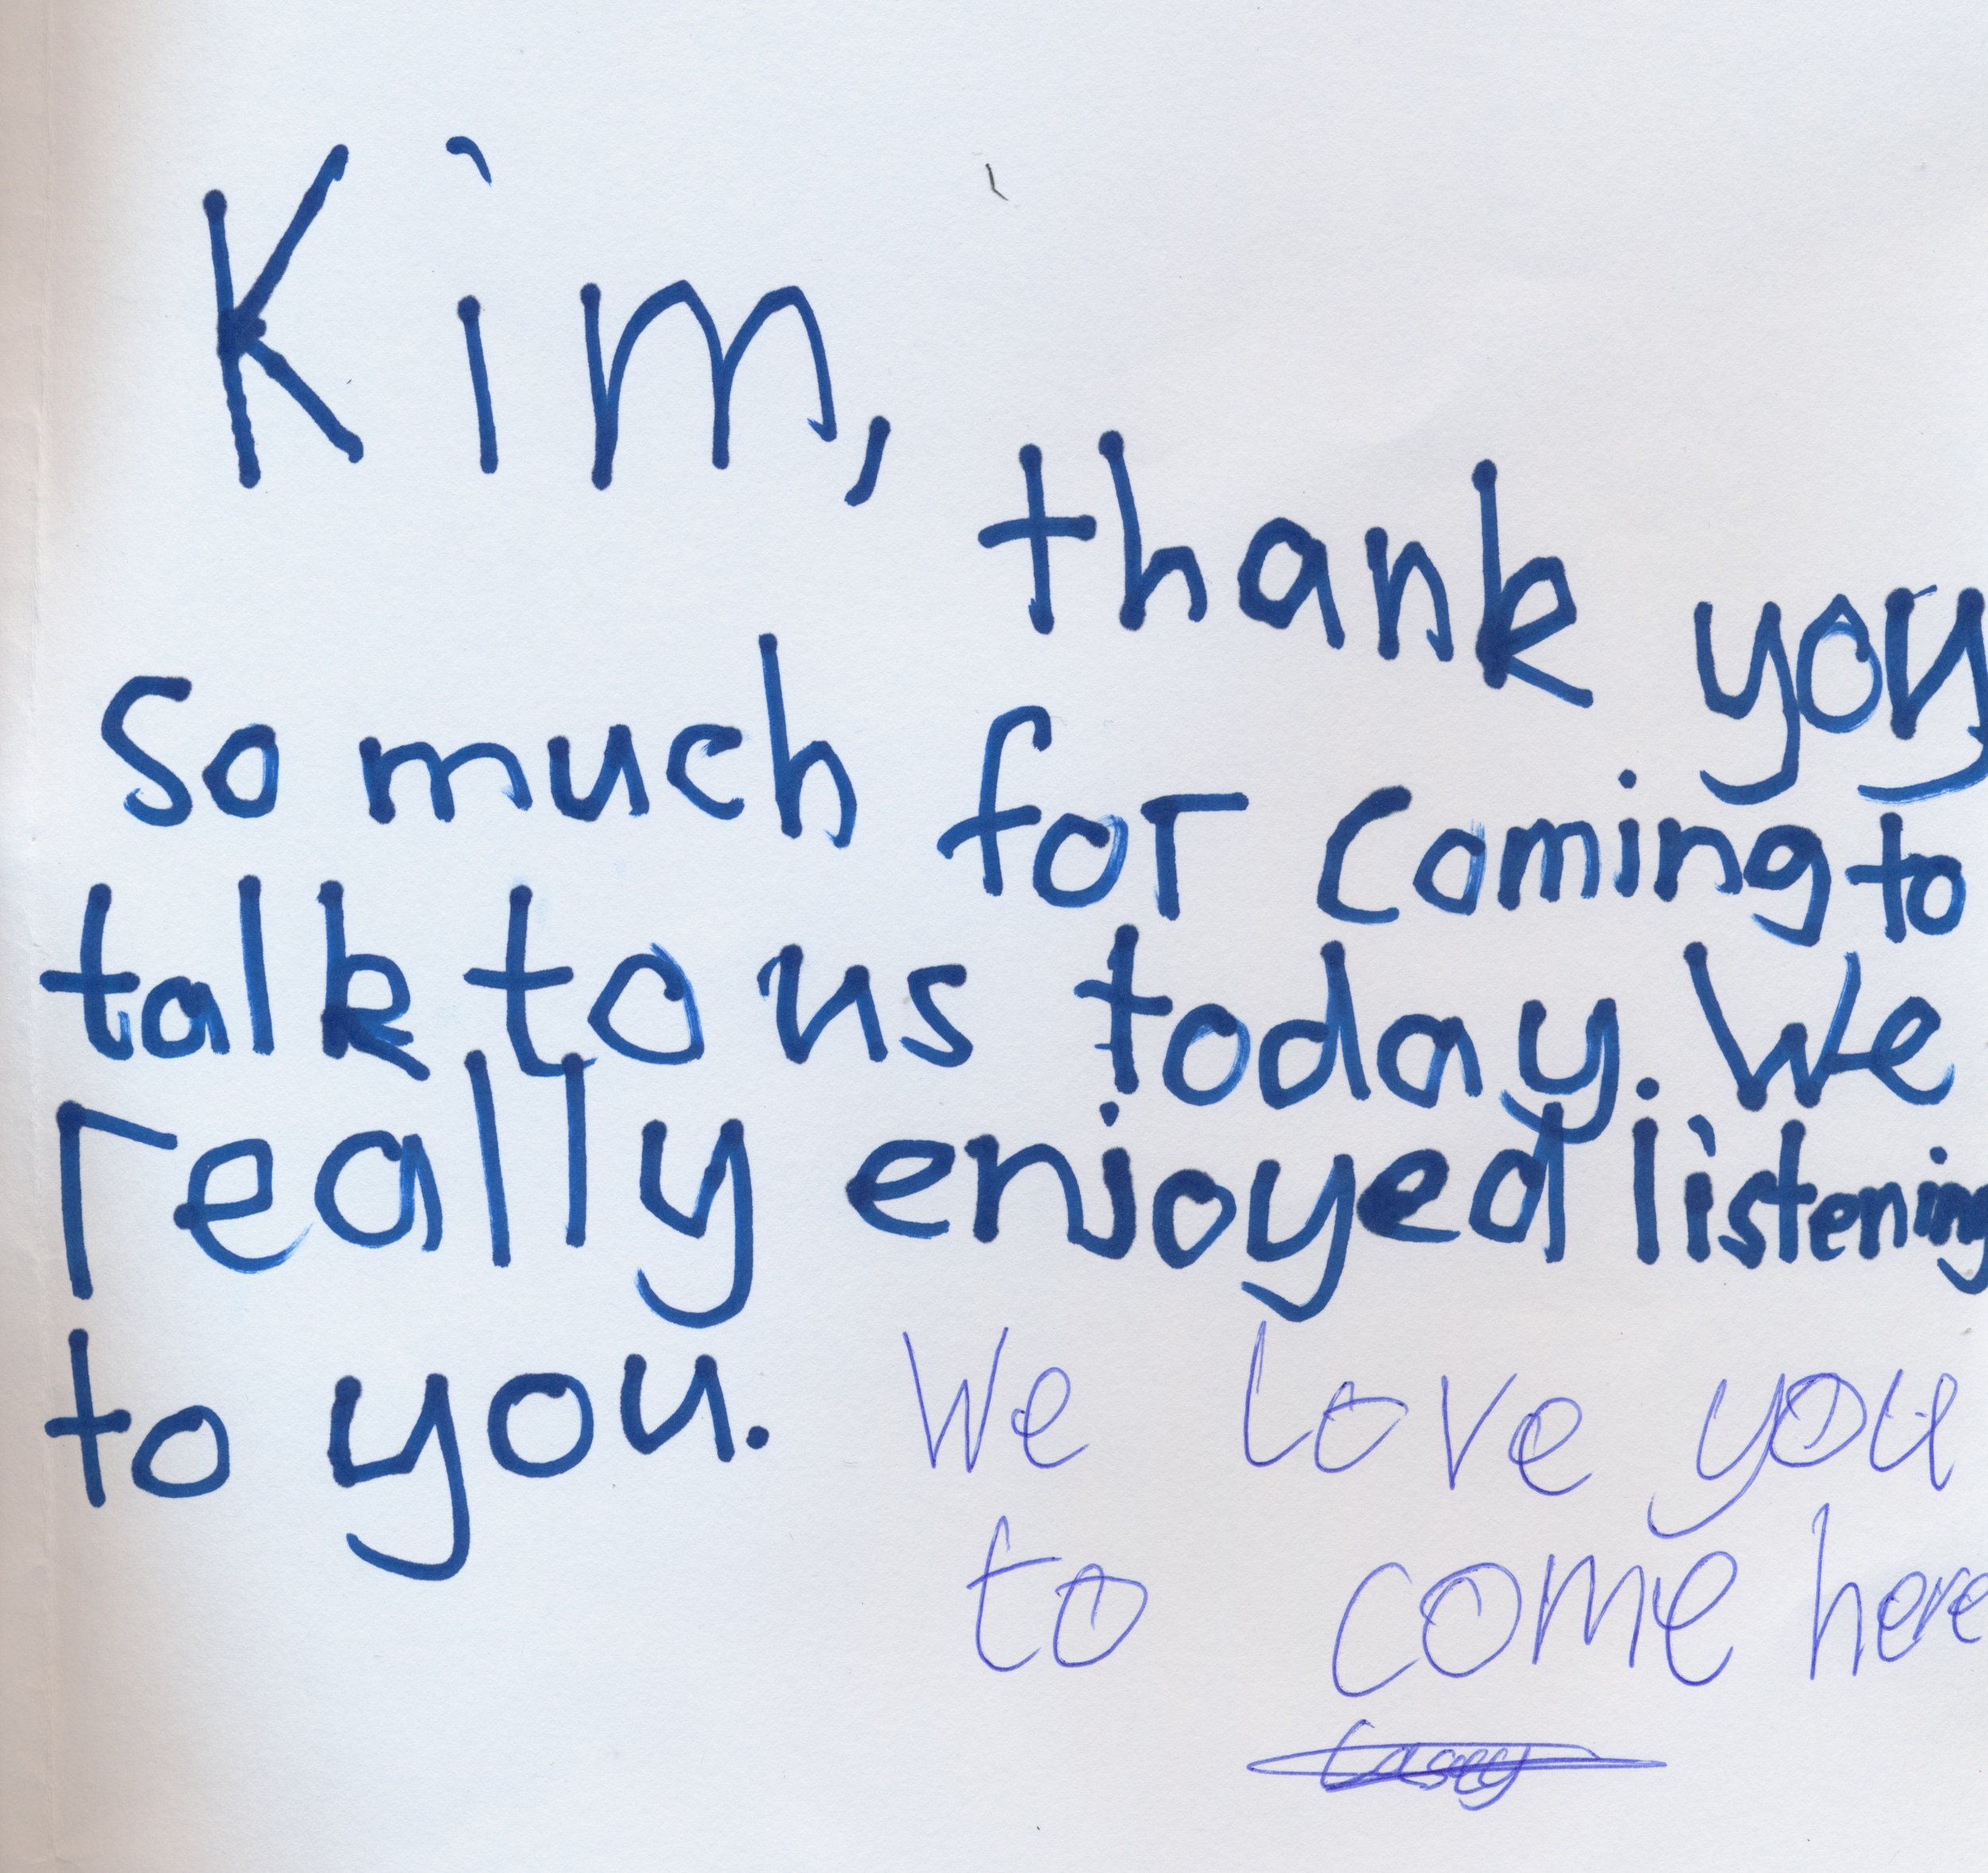 Kim,
thank you
so much for coming to
talk to us today. We
really enjoyed listening
to you.
We love you
to come here
Casey